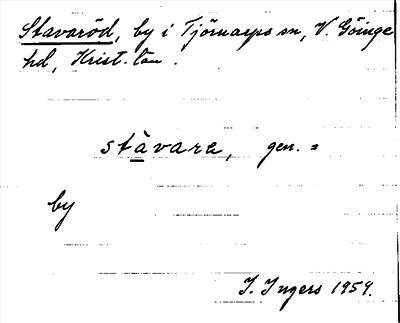 Stavaröd, by i Tjörnarps sn, V. Göinge
hd, Krist. län.
stàvara, gen. =
by
I. Ingers 1959.